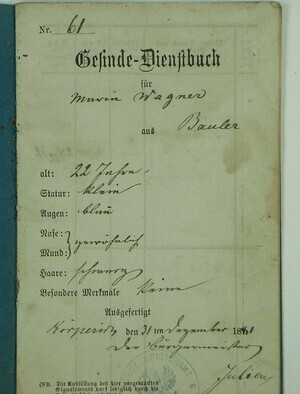 Nr. 61
Gesinde-Dienstbuch
für
Maria Wagner
aus Bauler
alt: 22 Jahre.
Statur: klein
Augen: blau
Nase: } gewöhnlich
Mund:
Haare: schwarz
Besondere Merkmale keine
Ausgefertigt
Körperich den 31ten Dezember 18
Der Bürgermeister
(NB. Die Ausfüllung des hier vorgedruckten
Signalements darf lediglich durch die